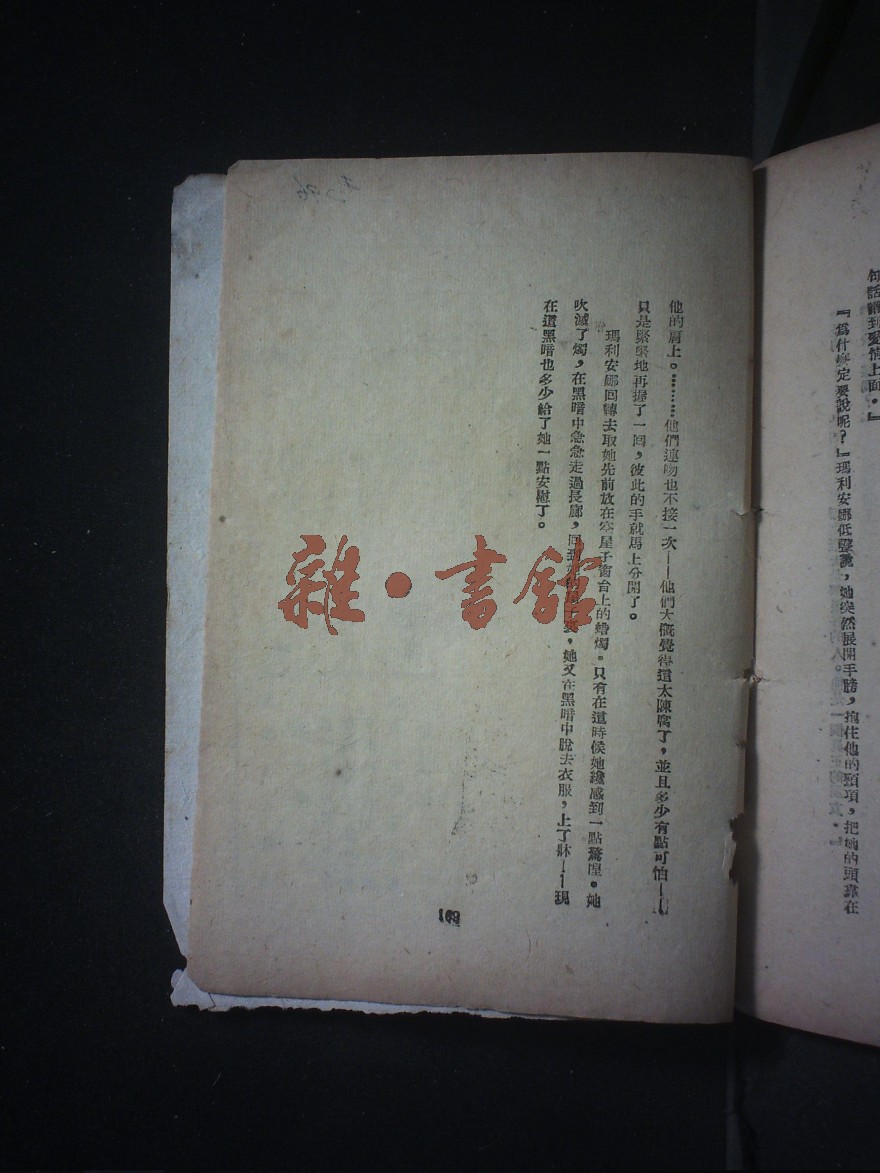 句話講到愛情上面。』
『爲什麼定要說呢？』瑪利安娜低聲說，她突然展開手膀，抱住他的頸項，把她的頭靠在
他的肩上。………他們連吻也不接一次——他們大概覺得這太陳腐了，並且多少有點可怕——
只是緊緊地再握了一回，彼此的手就馬上分開了。
瑪利安娜回轉去取她先前放在空屋子窗台上的蠟燭。只有在這時候她纔感到一點驚惶。她
吹滅了燭，在黑暗中急急走過長廊，回到，她又在黑暗中脫去衣服，上了牀——現
在這黑暗也多少給了她一點安慰了。
169
雜·書館